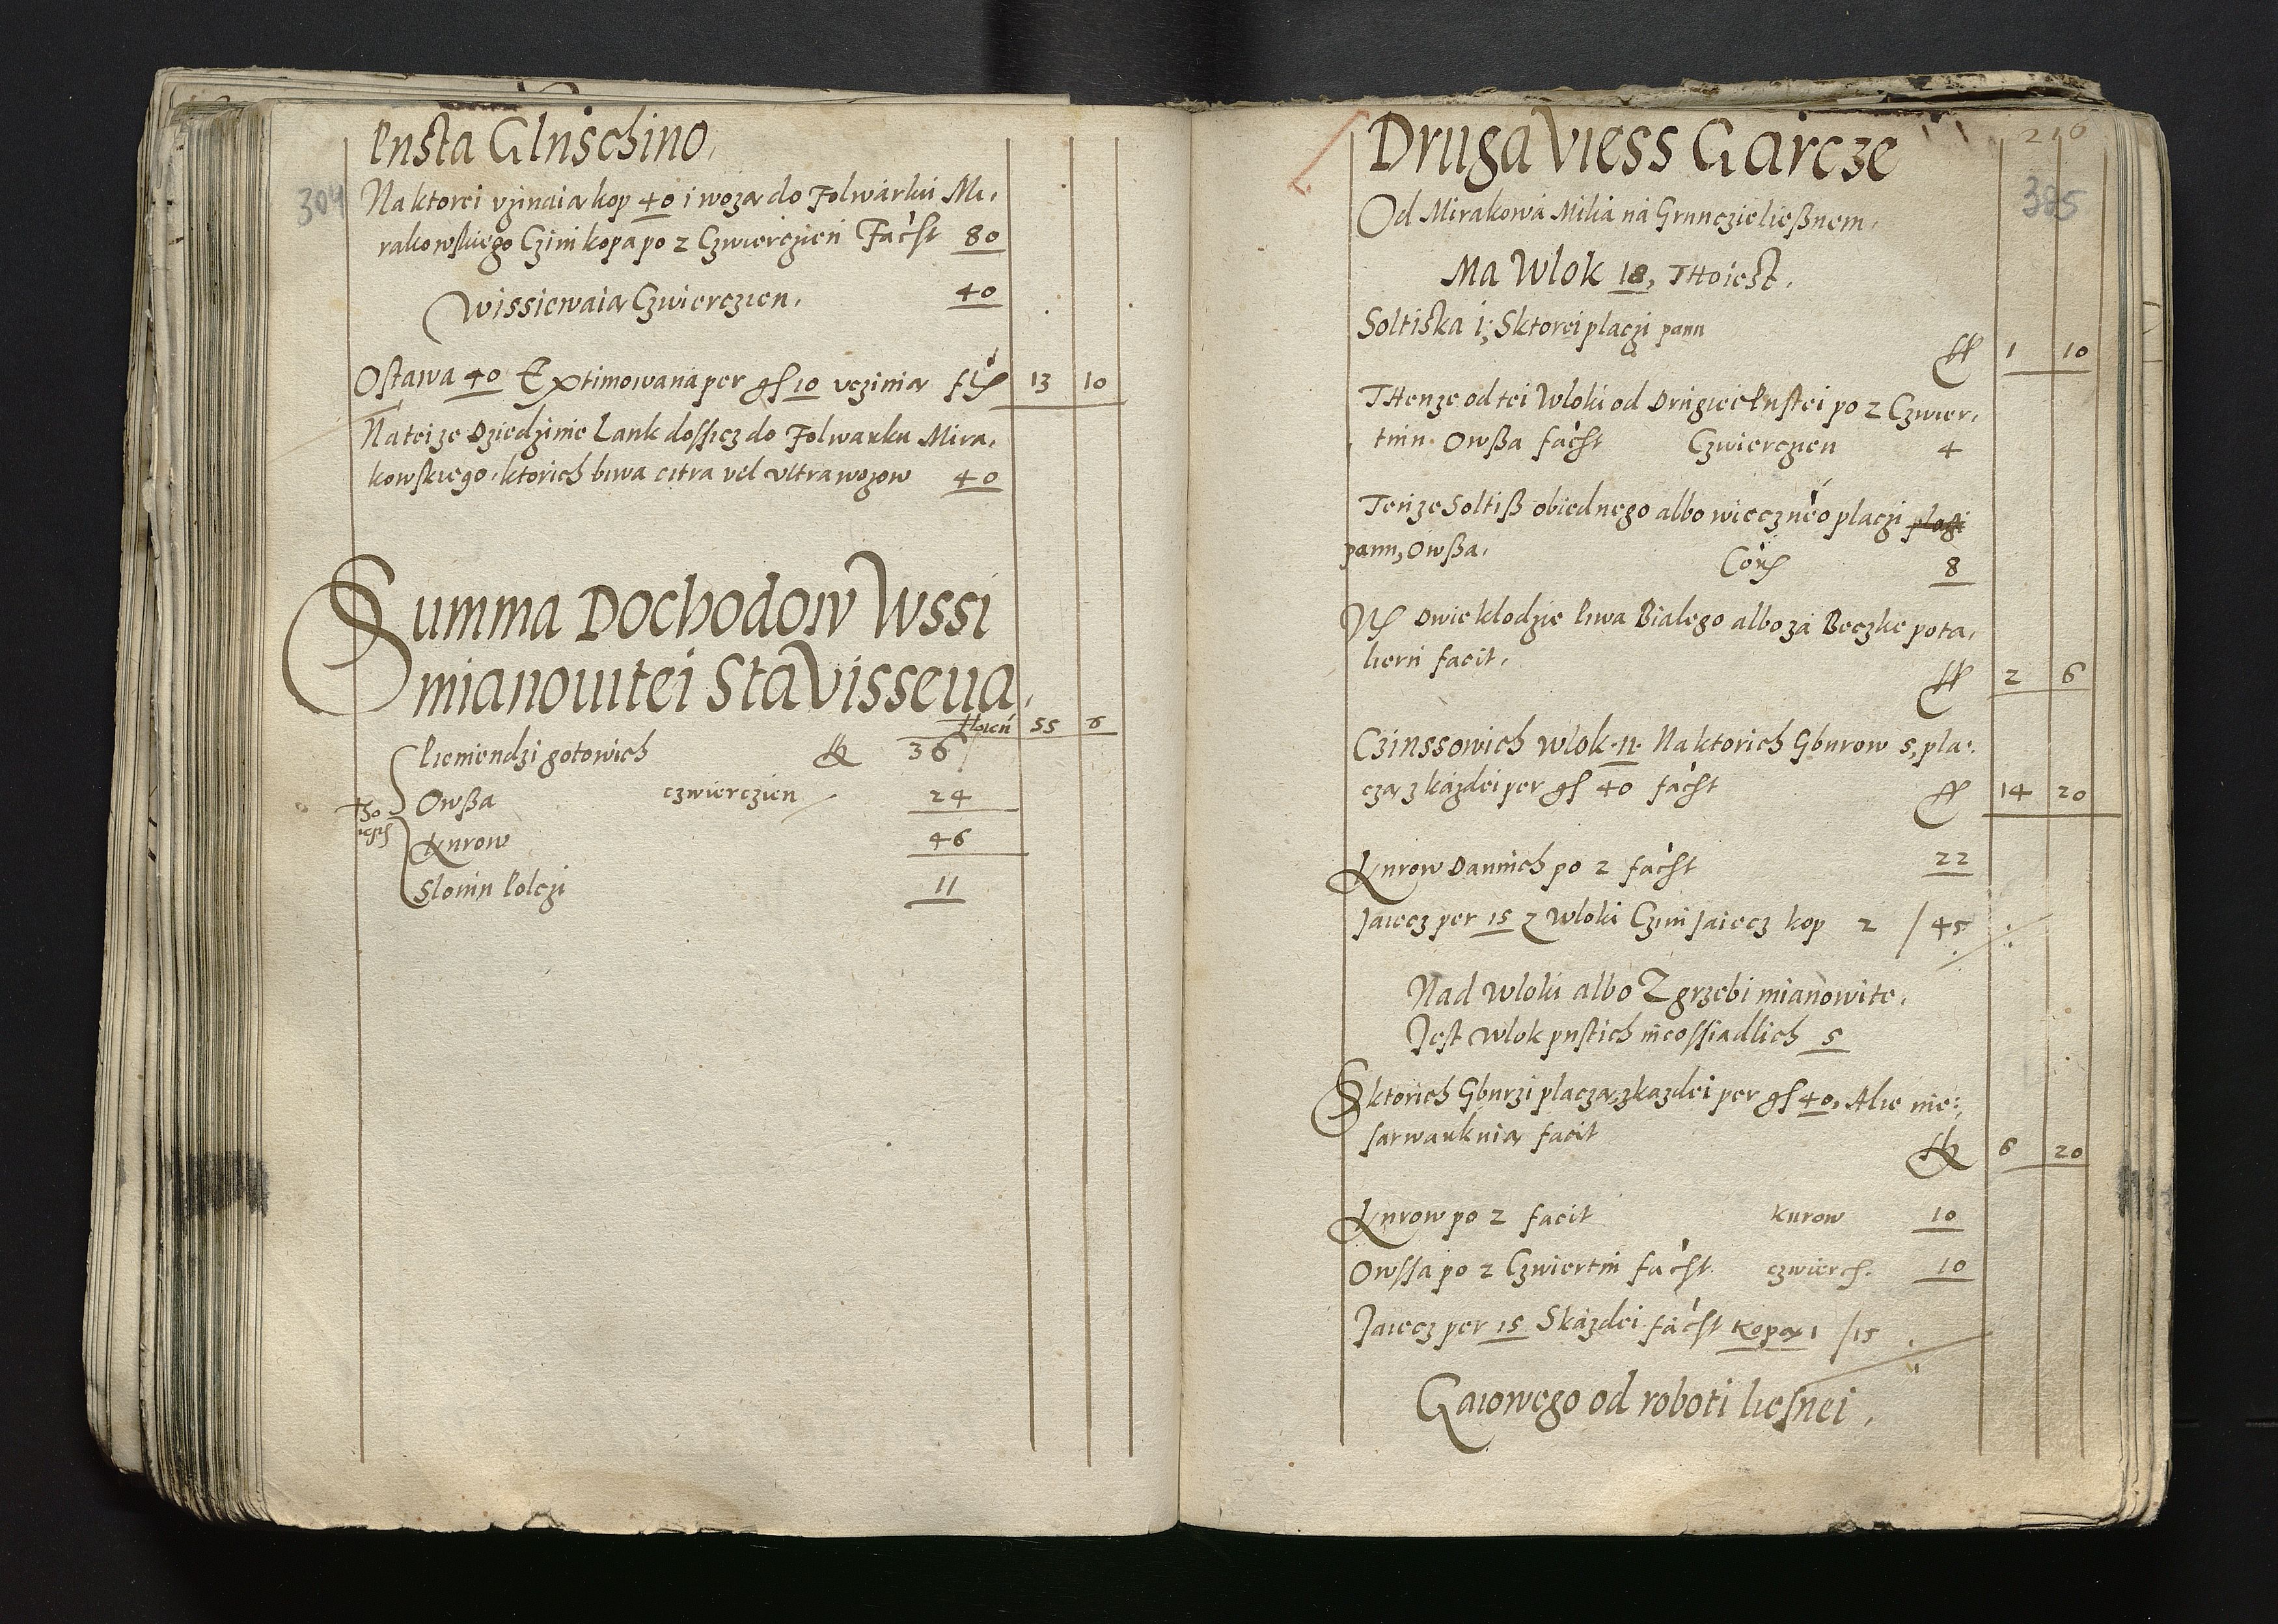 304
Pusta Gluschino,
Na ktorei vzinaia kop 40 i woza do Folwarku Mi,
rakowskiego Czini kopa po 2 Czwierczien Facst 80
Wissiewaia Czwierczien, 40
Ostawa 40 Extimowana per gs 10 vczinia fl 13 10
Na teize Dziedzinie Lank dossicz do Folwarku Mira,
kowskiego, ktorich biwa citra vel vltra wozow 40
Summa Dochodow Wssi
mianowitei Stavisseva,
floren 55 6
Pieniendzi gotowich fl 36
Owßa czwierczien 24
To
iest
Kurow 46
Slonin Polczi 11
210
385
Druga Viess Garcze
Od Mirakowa Milia na Grunczie liesßnem,
Ma Wlok 18, THoiest,
Soltiska 1; Sktorei placzi panu
fl 1 10
THenze od tei Wloki od Drugiei Pustei po 2 Czwier,
tnin Owßa facst Czwierczien 4
Tenze Soltiß obiednego albo wieczneo placzi placzi
panu, Owßa, Cor 8
It Dwie klodzie Piwa Bialego albo za Beczke po ta,
lierii facit,
fl 2 6
Czinssowich wlok 11 Na ktorich Gburow 5, pla,
cza z kazdei per gs 40 facst fl 14 20
Kurow Dannich po 2 facst 22
Jaiecz per 15 z Wloki Czini Jaiecz kop 2 / 45
Nad Wloki albo Zgrzebi mianowite,
Jest Wlok pustich nieossiadlich 5
Sktorich Gburzi placza, z kazdei per gs 40, Alie nie,
sarwaukuia facit fl 6 20
Kurow po 2 facit kurow 10
Owssa po 2 Czwiertni facst czwiercz. 10
Jaiecz per 15 Skazdei facst Kopa 1 / 15
Gaiowego od roboti liesnei,